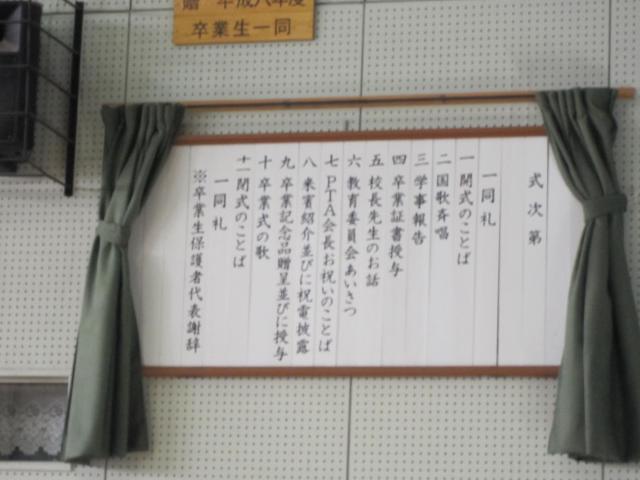 贈 平成八年度
卒業生一同
式次第
一同礼
一 開式のことば
二 国歌斉唱
三 学事報告
四 卒業証書授与
五 校長先生のお話
六 教育委員会あいさつ
七 PTA会長お祝いのことば
八 来賓紹介並びに祝電披露
九 卒業記念品贈呈並びに授与
十 卒業式の歌
十一 閉式のことば
一同礼
※卒業生保護者代表謝辞